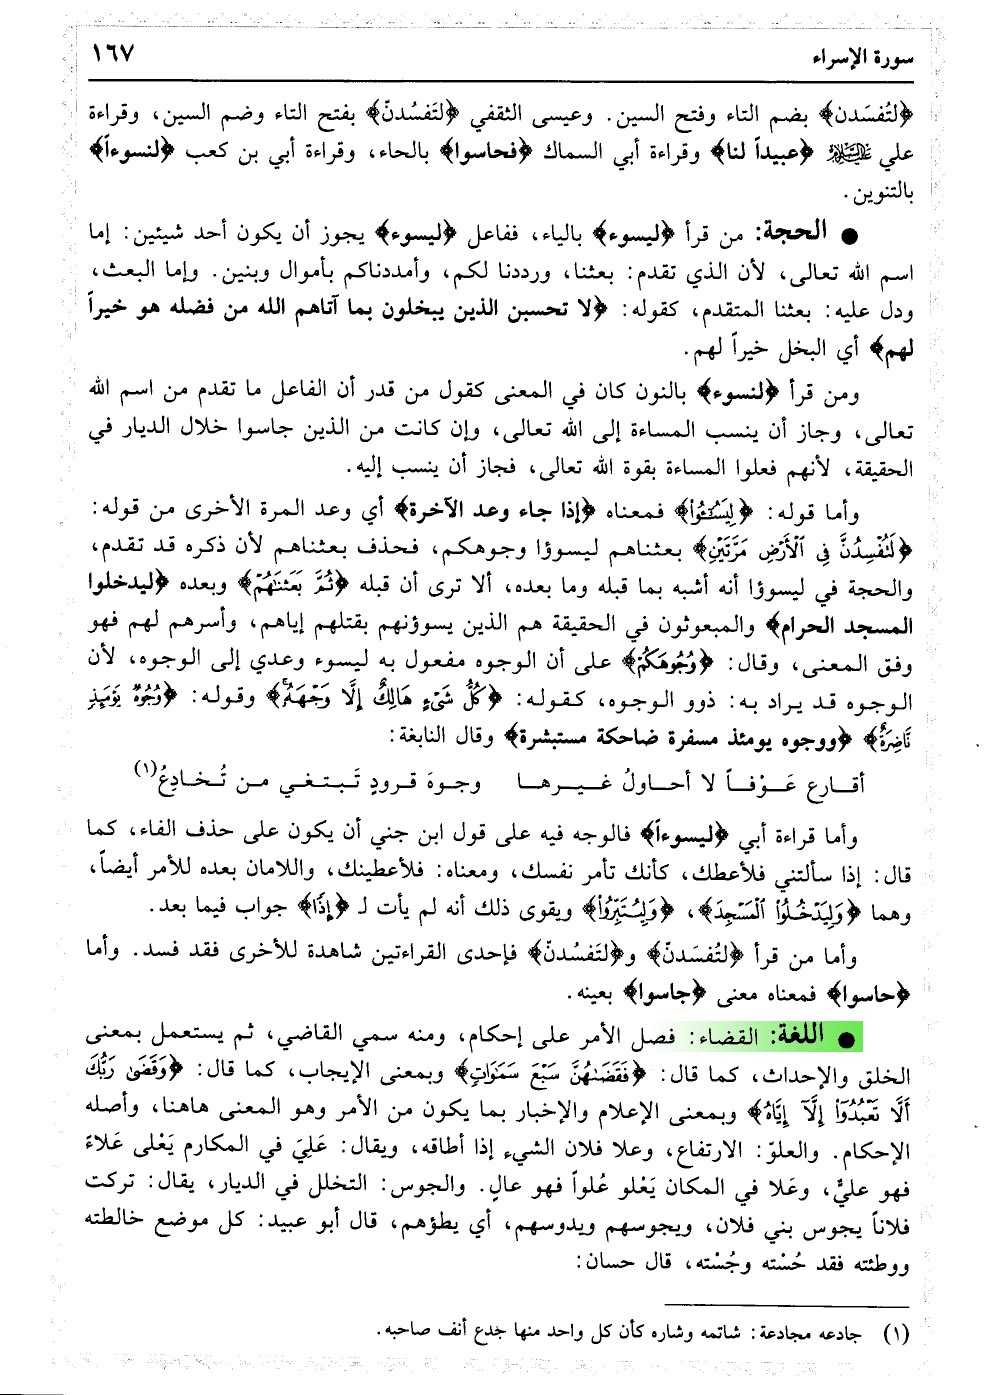 سورة الإسراء ١٦٧
﴿لتُفسَدن﴾ بضم التاء وفتح السين. وعيسى الثقفي ﴿لتَفسُدنّ﴾ بفتح التاء وضم السين، وقراءة
علي عليه السلام ﴿عبيداً لنا﴾ وقراءة أبي السماك ﴿فحاسوا﴾ بالحاء، وقراءة أبي بن كعب ﴿لنسوءاً﴾
بالتنوين.
● الحجة: من قرأ ﴿ليسوء﴾ بالياء، ففاعل ﴿ليسوء﴾ يجوز أن يكون أحد شيئين: إما
اسم الله تعالى، لأن الذي تقدم: بعثنا، ورددنا لكم، وأمددناكم بأموال وبنين. وإما البعث،
ودل عليه: بعثنا المتقدم، كقوله: ﴿لا تحسبن الذين يبخلون بما آتاهم الله من فضله هو خيراً
لهم﴾ أي البخل خيراً لهم.
ومن قرأ ﴿لنسوء﴾ بالنون كان في المعنى كقول من قدر أن الفاعل ما تقدم من اسم الله
تعالى، وجاز أن ينسب المساءة إلى الله تعالى، وإن كانت من الذين جاسوا خلال الديار في
الحقيقة، لأنهم فعلوا المساءة بقوة الله تعالى، فجاز أن ينسب إليه.
وأما قوله: ﴿لِيَسُـُٔوا۟﴾ فمعناه ﴿إذا جاء وعد الآخرة﴾ أي وعد المرة الأخرى من قوله:
﴿لَتُفْسِدُنَّ فِى ٱلْأَرْضِ مَرَّتَيْنِ﴾ بعثناهم ليسوؤا وجوهكم، فحذف بعثناهم لأن ذكره قد تقدم،
والحجة في ليسوؤا أنه أشبه بما قبله وما بعده، ألا ترى أن قبله ﴿ثُمَّ بَعَثْنَٰهُمْ﴾ وبعده ﴿ليدخلوا
المسجد الحرام﴾ والمبعوثون في الحقيقة هم الذين يسوؤنهم بقتلهم إياهم، وأسرهم لهم فهو
وفق المعنى، وقال: ﴿وُجُوهَكُمْ﴾ على أن الوجوه مفعول به ليسوء وعدي إلى الوجوه، لأن
الوجوه قد يراد به: ذوو الوجوه، كقوله: ﴿كُلُّ شَىْءٍ هَالِكٌ إِلَّا وَجْهَهُۥ﴾ وقوله: ﴿وُجُوهٌ يَوْمَئِذٍ
نَّاضِرَةٌ﴾ ﴿ووجوه يومئذ مسفرة ضاحكة مستبشرة﴾ وقال النابغة:
أقارع عَوْفاً لا أحاولُ غيرها وجوهَ قرودٍ تَبتغي من تُخادِعُ(١)
وأما قراءة أبي ﴿ليسوءاً﴾ فالوجه فيه على قول ابن جني أن يكون على حذف الفاء، كما
قال: إذا سألتني فلأعطك، كأنك تأمر نفسك، ومعناه: فلأعطينك، واللامان بعده للأمر أيضاً،
وهما ﴿وَلِيَدْخُلُوا۟ ٱلْمَسْجِدَ﴾، ﴿وَلِيُتَبِّرُوا۟﴾ ويقوى ذلك أنه لم يأت لـ ﴿إِذَا﴾ جواب فيما بعد.
وأما من قرأ ﴿لتُفسَدنّ﴾ و﴿لتَفسُدنّ﴾ فإحدى القراءتين شاهدة للأخرى فقد فسد. وأما
﴿حاسوا﴾ فمعناه معنى ﴿جاسوا﴾ بعينه.
● اللغة: القضاء: فصل الأمر على إحكام، ومنه سمي القاضي، ثم يستعمل بمعنى
الخلق والإحداث، كما قال: ﴿فَقَضَىٰهُنَّ سَبْعَ سَمَٰوَاتٍ﴾ وبمعنى الإيجاب، كما قال: ﴿وَقَضَىٰ رَبُّكَ
أَلَّا تَعْبُدُوٓا۟ إِلَّآ إِيَّاهُ﴾ وبمعنى الإعلام والإخبار بما يكون من الأمر وهو المعنى هاهنا، وأصله
الإحكام. والعلوّ: الارتفاع، وعلا فلان الشيء إذا أطاقه، ويقال: عَلِيَ في المكارم يَعْلى عَلاءً
فهو عليٌّ، وعَلا في المكان يَعْلو عُلواً فهو عالٍ. والجوس: التخلل في الديار، يقال: تركت
فلاناً يجوس بني فلان، ويجوسهم ويدوسهم، أي يطؤهم، قال أبو عبيد: كل موضع خالطته
ووطئته فقد حُسْته وجُسْته، قال حسان:
(١) جادعه مجادعة: شاتمه وشاره كأن كل واحد منها جدع أنف صاحبه.